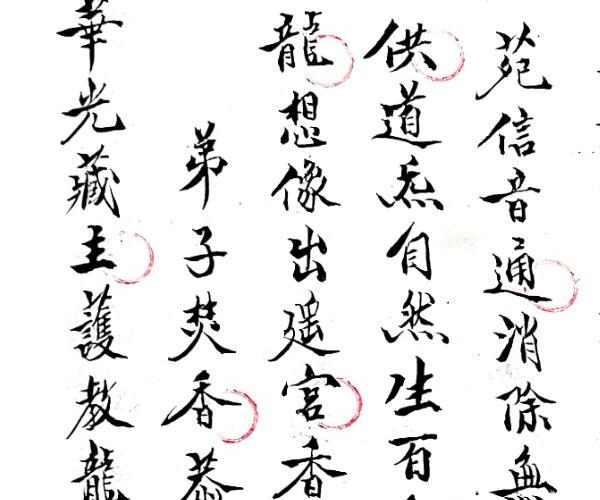 苑信音通消除無
供道炁自然生百
龍想像出遥宮香
弟子焚香恭
華光藏主護教龍